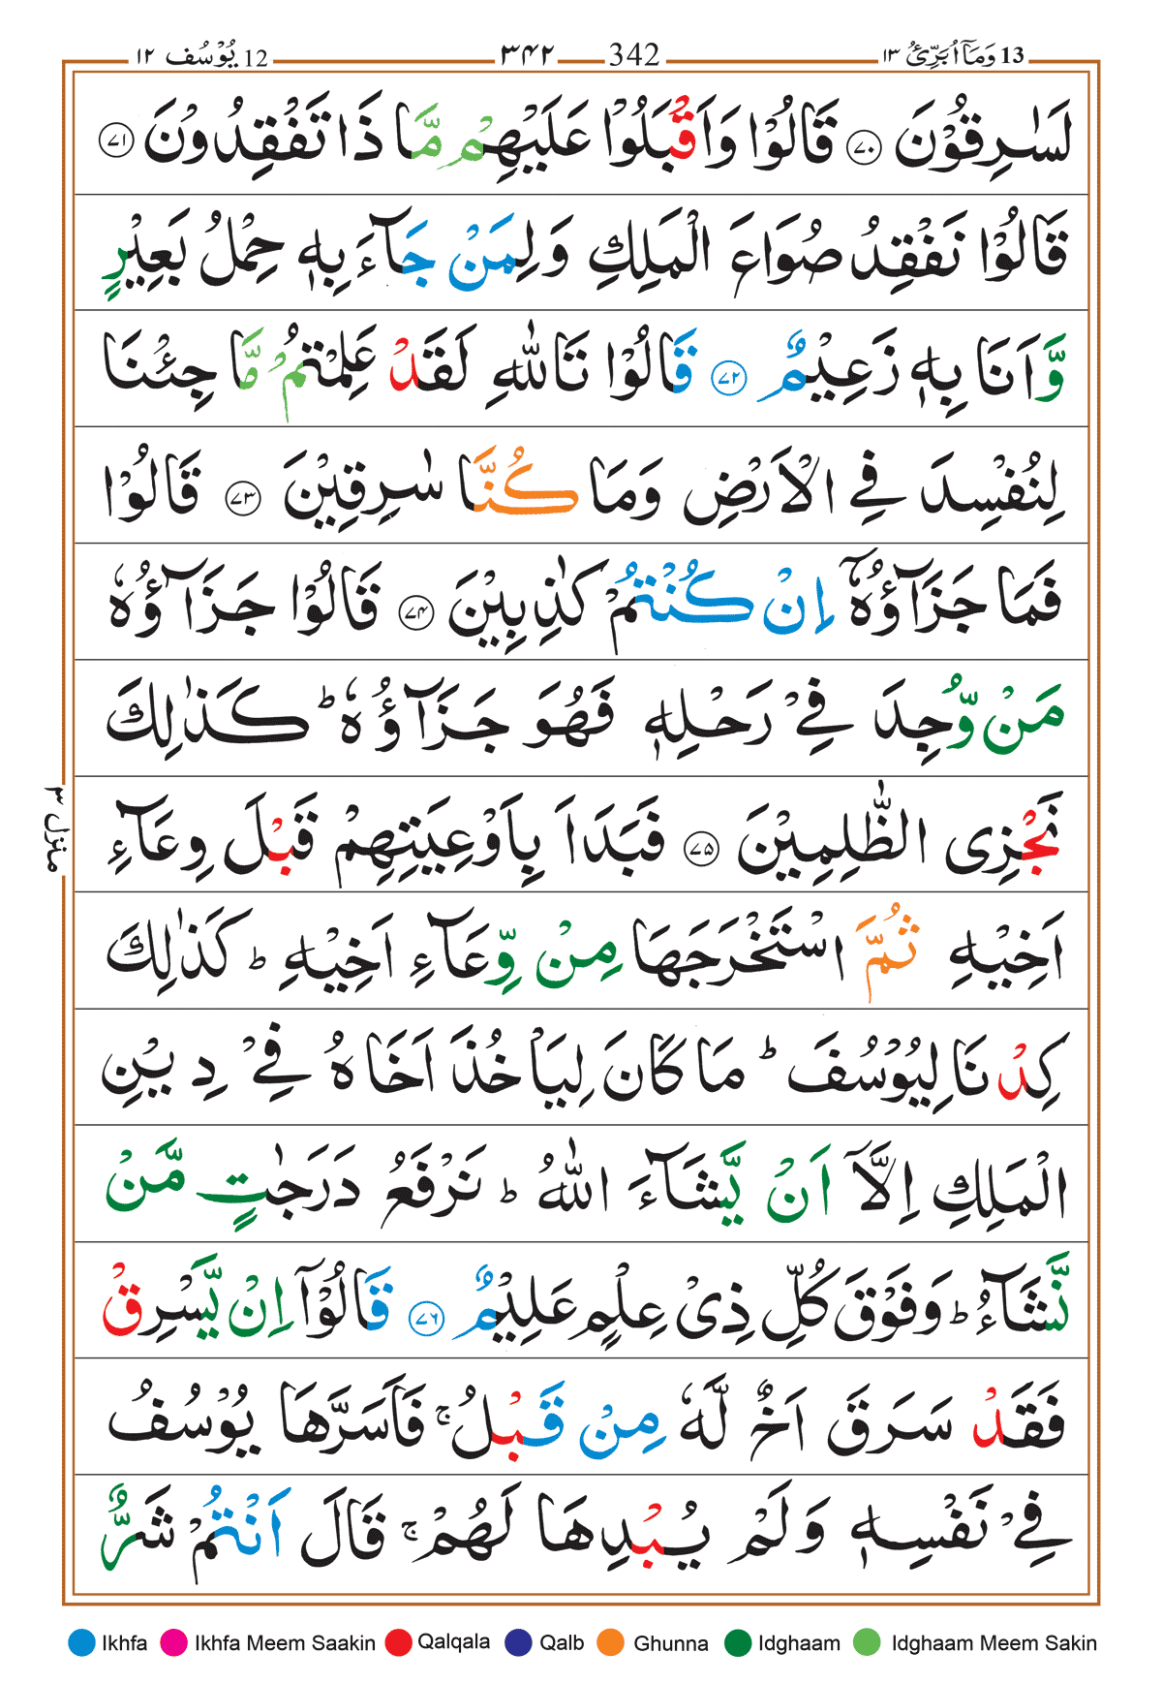 13 وَمَآ اُبَرِّئُ ١٣ 342 ٣٤٢ 12 يُوْسُف ١٢
لَسٰرِقُوْنَ ﴿٧٠﴾ قَالُوْا وَاَقْبَلُوْا عَلَيْهِمْ مَّا ذَا تَفْقِدُوْنَ ﴿٧١﴾
قَالُوْا نَفْقِدُ صُوَاعَ الْمَلِكِ وَلِمَنْ جَآءَ بِهٖ حِمْلُ بَعِيْرٍ
وَّاَنَا بِهٖ زَعِيْمٌ ﴿٧٢﴾ قَالُوْا تَاللّٰهِ لَقَدْ عَلِمْتُمْ مَّا جِئْنَا
لِنُفْسِدَ فِي الْاَرْضِ وَمَا كُنَّا سٰرِقِيْنَ ﴿٧٣﴾ قَالُوْا
فَمَا جَزَآؤُهٗٓ اِنْ كُنْتُمْ كٰذِبِيْنَ ﴿٧٤﴾ قَالُوْا جَزَآؤُهٗ
مَنْ وُّجِدَ فِيْ رَحْلِهٖ فَهُوَ جَزَآؤُهٗ ؕ كَذٰلِكَ
نَجْزِى الظّٰلِمِيْنَ ﴿٧٥﴾ فَبَدَاَ بِاَوْعِيَتِهِمْ قَبْلَ وِعَآءِ
اَخِيْهِ ثُمَّ اسْتَخْرَجَهَا مِنْ وِّعَآءِ اَخِيْهِ ؕ كَذٰلِكَ
كِدْنَا لِيُوْسُفَ ؕ مَا كَانَ لِيَاْخُذَ اَخَاهُ فِيْ دِيْنِ
الْمَلِكِ اِلَّآ اَنْ يَّشَآءَ اللّٰهُ ؕ نَرْفَعُ دَرَجٰتٍ مَّنْ
نَّشَآءُ ؕ وَفَوْقَ كُلِّ ذِيْ عِلْمٍ عَلِيْمٌ ﴿٧٦﴾ قَالُوْٓا اِنْ يَّسْرِقْ
فَقَدْ سَرَقَ اَخٌ لَّهٗ مِنْ قَبْلُ ۚ فَاَسَرَّهَا يُوْسُفُ
فِيْ نَفْسِهٖ وَلَمْ يُبْدِهَا لَهُمْ ۚ قَالَ اَنْتُمْ شَرٌّ
منزل ٣
Ikhfa Ikhfa Meem Saakin Qalqala Qalb Ghunna Idghaam Idghaam Meem Sakin